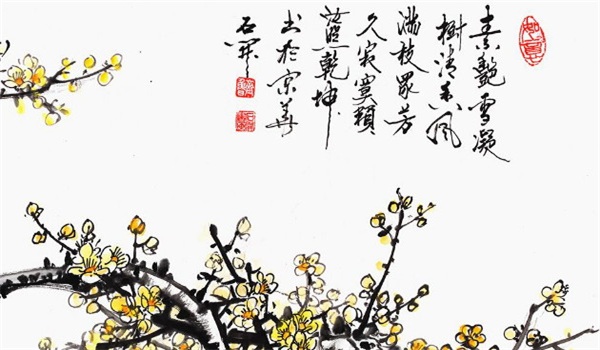 素艷雪凝
樹清香風
滿枝眾芳
久寂寞顆
蕊照乾坤
書於京華
石開